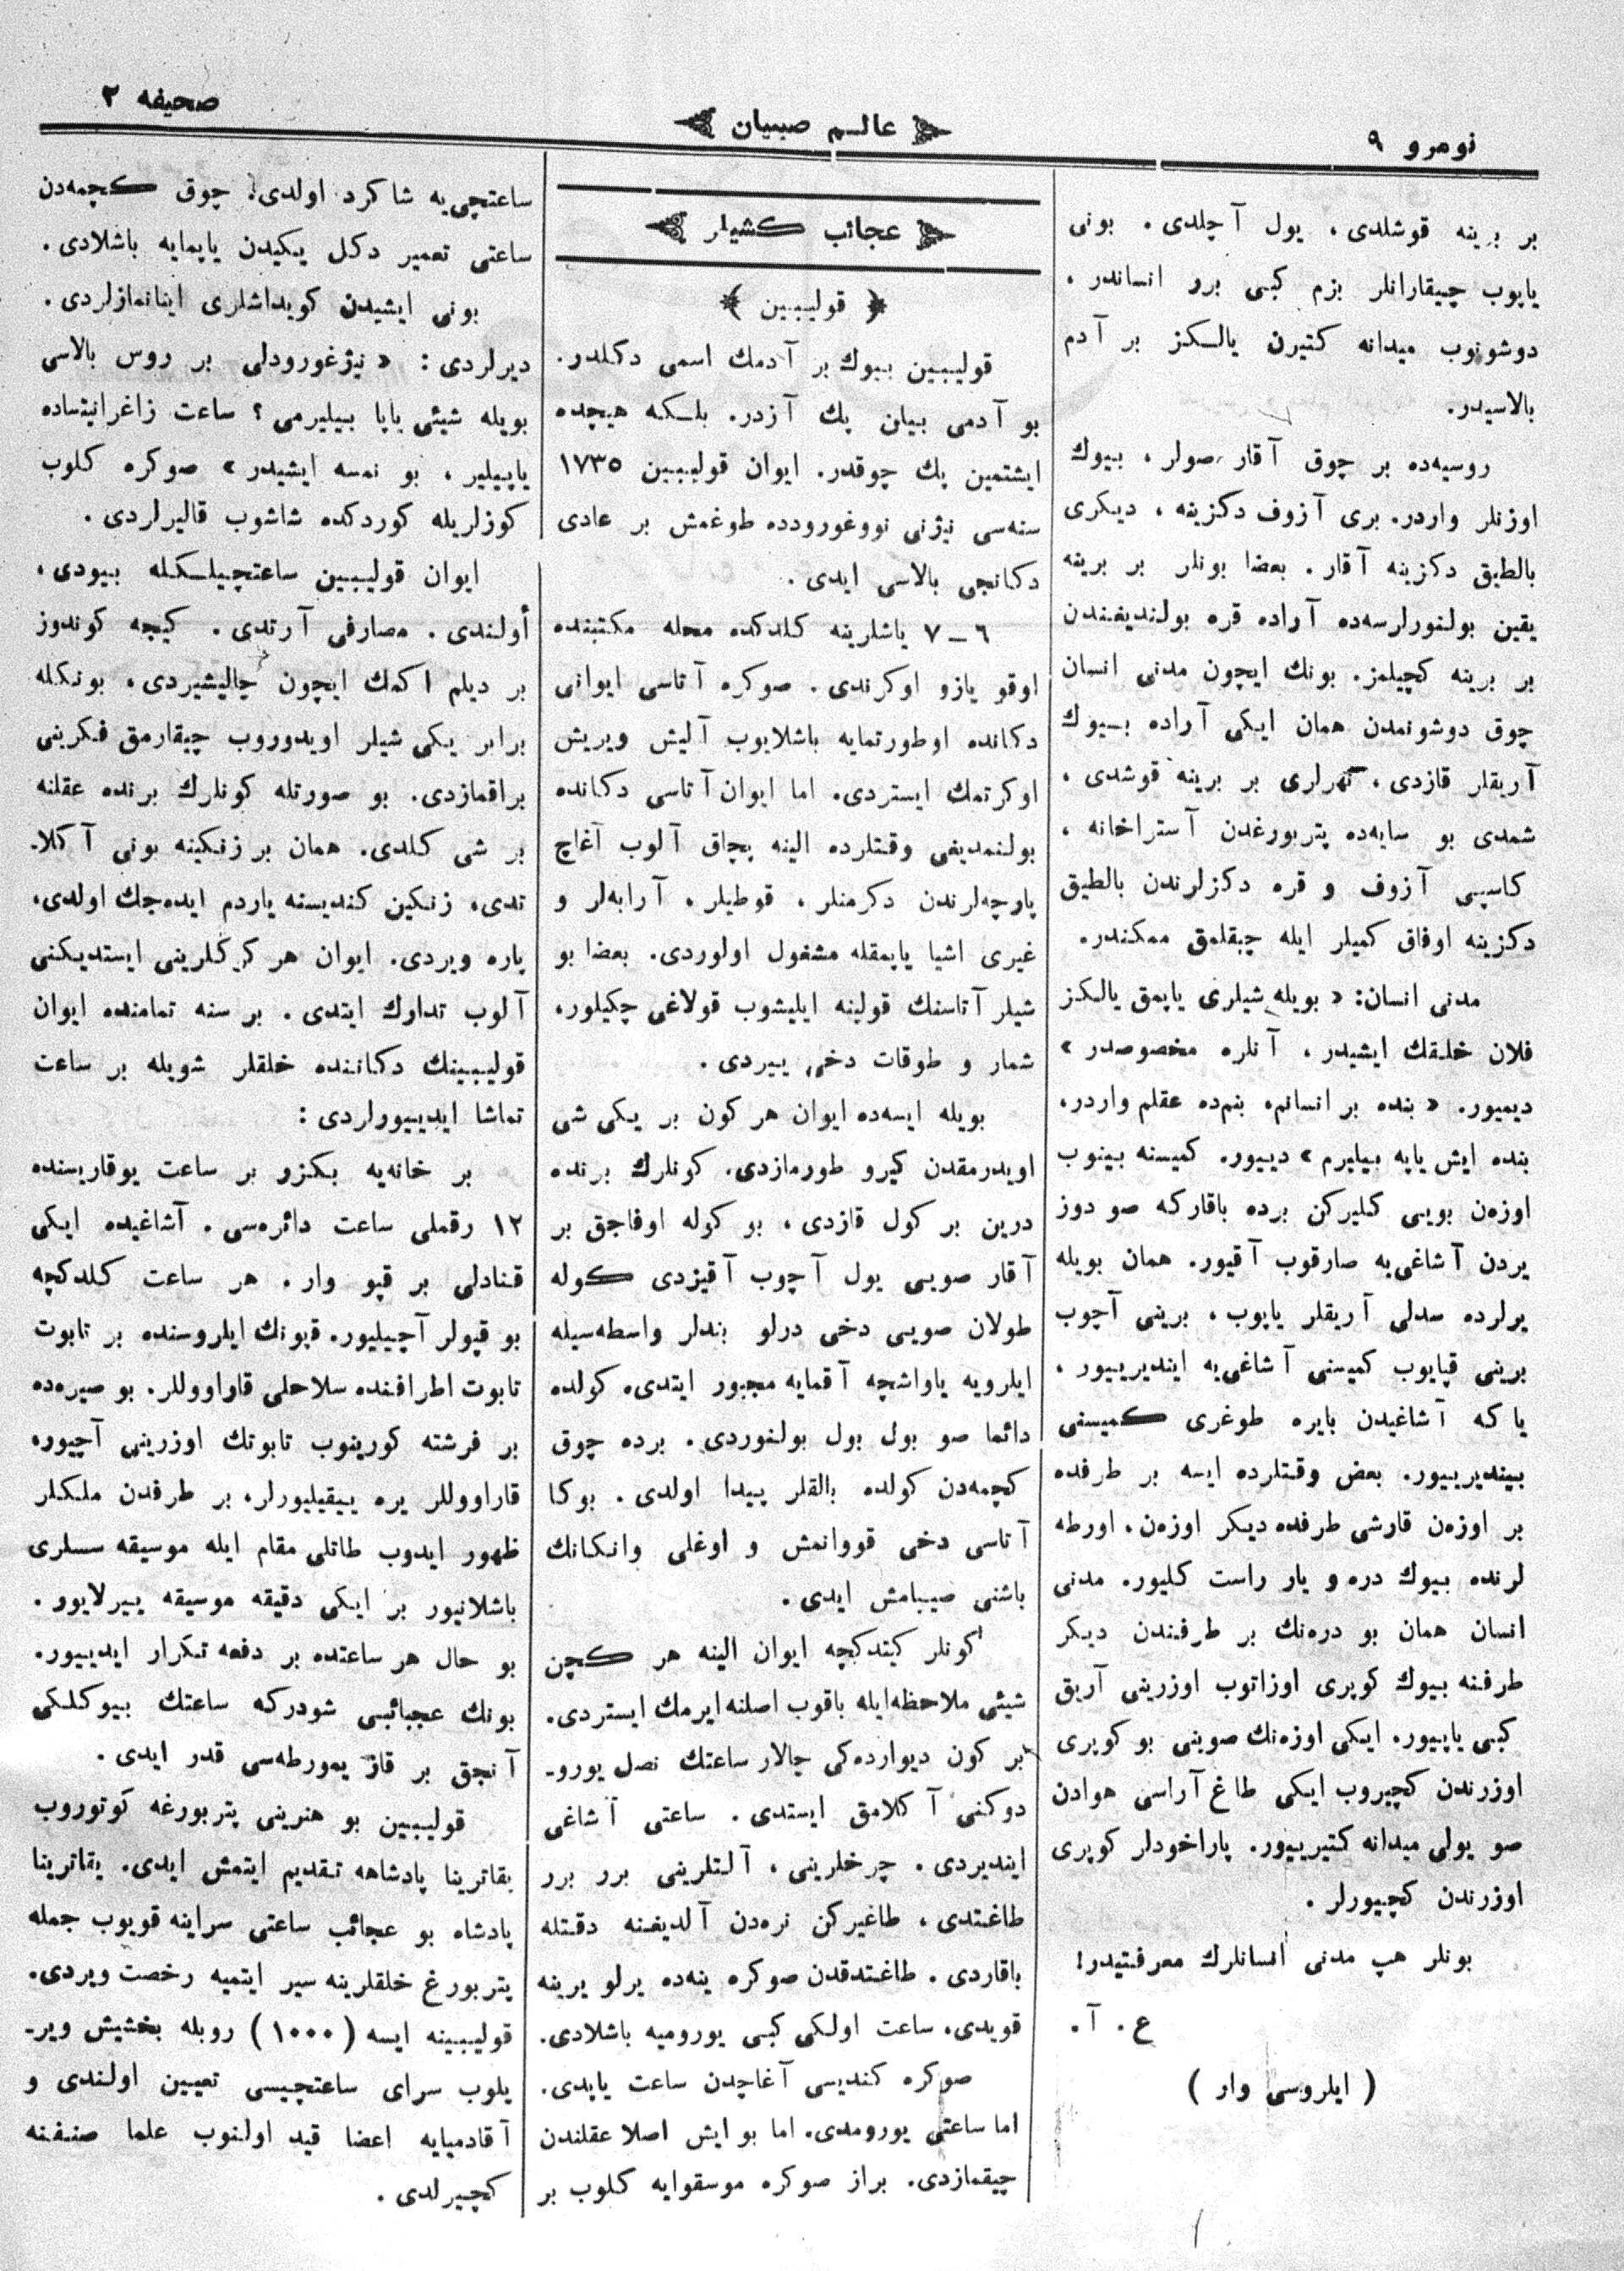 نومرو ۹
عالـم صبيان
صحيفه ۲
بر برينه قوشلدى، يول آچلدى. بونى
ياپوب چيقارانلر بزم كبى برر انساندر،
دوشونوب ميدانه كتيرن يالـكز بر آدم
بالاسيدر.
روسيه‌ده بر چوق آقار صولر، بيوك
اوزنلر واردر. برى آزوف دكزينه، ديكرى
بالطيق دكزينه آقار. بعضا بونلر بر برينه
يقين بولنورلرسه‌ده آراده قره بولنديغندن
بر برينه كچيلمز. بونك ايچون مدنى انسان
چوق دوشونمدن همان ايكى آراده بيوك
آريقلر قازدى، نهرلرى بر برينه قوشدى،
شمدى بو سايه‌ده پتربورغدن آستراخانه،
كاسپى آزوف و قره دكزلرندن بالطيق
دكزينه اوفاق كميلر ايله چيقلمق ممكندر.
مدنى انسان: «بويله شيلرى ياپمق يالكز
فلان خلقك ايشيدر، آنلره مخصوصدر»
ديميور. «بنده بر انسانم، بنم‌ده عقلم واردر،
بنده ايش ياپه بيليرم» دييور. كميسنه بينوب
اوزه‌ن بويى كليركن برده باقاركه صو دوز
يردن آشاغى‌يه صارقوب آقيور. همان بويله
يرلرده سدلى آريقلر ياپوب، برينى آچوب
برينى قپايوب كميسنى آشاغى‌يه اينديرييور،
يا كه آشاغيدن بايره طوغرى كميسنى
بينديرييور. بعض وقتلرده ايسه بر طرفده
بر اوزه‌ن قارشى طرفده ديكر اوزه‌ن، اورطه
لرنده بيوك دره و يار راست كليور. مدنى
انسان همان بو دره‌نك بر طرفندن ديكر
طرفنه بيوك كوپرى اوزاتوب اوزرينى آريق
كبى ياپيور. ايكى اوزه‌نك صوينى بو كوپرى
اوزرندن كچيروب ايكى طاغ آراسى هوادن
صو يولى ميدانه كتيرييور. پاراخودلر كوپرى
اوزرندن كچيورلر.
بونلر هپ مدنى انسانلرك معرفتيدر!
ع. آ.
(ايلروسى وار)
عجائب كشيلر
﴿ قوليبين ﴾
قوليبين بيوك بر آدمك اسمى دكلدر.
بو آدمى بيان پك آزدر. بلـكه هيچده
ايشتمين پك چوقدر. ايوان قوليبين ۱۷۳۵
سنه‌سى نيژنى نووغوروددە طوغمش بر عادى
دكانجى بالاسى ايدى.
۶ـ۷ ياشلرينه كلدكده محله مكتبنده
اوقو يازو اوكرندى. صوكره آتاسى ايوانى
دكانده اوطورتمايه باشلايوب آليش ويريش
اوكرتمك ايستردى. اما ايوان آتاسى دكانده
بولنمديغى وقتلرده الينه پچاق آلوب آغاچ
پارچه‌لرندن دكرمنلر، قوطيلر، آرابه‌لر و
غيرى اشيا ياپمقله مشغول اولوردى. بعضا بو
شيلر آتاسنك قولينه ايليشوب قولاغى چكيلور،
شمار و طوقات دخى ييردى.
بويله ايسه‌ده ايوان هر كون بر يكى شى
اويدرمقدن كيرو طورمازدى. كونلرك برنده
درين بر كول قازدى، بو كوله اوفاجق بر
آقار صويى يول آچوب آقيزدى كوله
طولان صويى دخى درلو بندلر واسطه‌سيله
ايلرويه ياواشچه آقمايه مجبور ايتدى. كولده
دائما صو بول بول بولنوردى. برده چوق
كچمه‌دن كولده بالقلر پيدا اولدى. بوكا
آتاسى دخى قووانمش و اوغلى وانكانك
باشنى صيبامش ايدى.
كونلر كيتدكچه ايوان الينه هر كچن
شيئى ملاحظه ايله باقوب اصلنه ايرمك ايستردى.
بر كون ديوارده‌كى چالار ساعتك نصل يورو-
دوكنى آكلامق ايستدى. ساعتى آشاغى
اينديردى. چرخلرينى، آلتلرينى برر برر
طاغتدى، طاغيركن نره‌دن آلديغنه دقتله
باقاردى. طاغتدقدن صوكره ينه‌ده يرلو يرينه
قويدى. ساعت اولكى كبى يوروميه باشلادى.
صوكره كنديسى آغاچدن ساعت ياپدى.
اما ساعتى يورومدى. اما بو ايش اصلا عقلندن
چيقمازدى. براز صوكره موسقوايه كلوب بر
ساعتچى‌يه شاكرد اولدى. چوق كچمه‌دن
ساعتى تعمير دكل يكيدن ياپمايه باشلادى.
بونى ايشيدن كويداشلرى اينانمازلردى.
ديرلردى: «نيژغورودلى بر روس بالاسى
بويله شيئى ياپا بيليرمى؟ ساعت زاغرانيتساده
ياپيلير، بو نمسه ايشيدر» صوكره كلوب
كوزلريله كوردكده شاشوب قاليرلردى.
ايوان قوليبين ساعتچيلـكله بيودى،
أولندى. مصارفى آرتدى. كيچه كوندوز
بر ديلم اكمك ايچون چاليشيردى، بونكله
برابر يكى شيلر اويدوروب چيقارمق فكرينى
براقمازدى. بو صورتله كونلرك برنده عقلنه
بر شى كلدى. همان بر زنكينه بونى آكلا-
تدى، زنكين كنديسنه ياردم ايده‌جك اولدى،
پاره ويردى. ايوان هر كركلرينى ايستديكنى
آلوب تدارك ايتدى. بر سنه تمامنده ايوان
قوليبينك دكاننده خلقلر شويله بر ساعت
تماشا ايدييورلردى:
بر خانه‌يه بكزر بر ساعت يوقاريسنده
۱۲ رقملى ساعت دائره‌سى. آشاغيده ايكى
قنادلى بر قپو وار. هر ساعت كلدكچه
بو قپولر آچيليور. قپونك ايلروسنده بر تابوت
تابوت اطرافنده سلاحلى قاراووللر. بو صيره‌ده
بر فرشته كورينوب تابوتك اوزرينى آچيور،
قاراووللر يره ييقيليورلر، بر طرفدن ملكلر
ظهور ايدوب طاتلى مقام ايله موسيقه سسلرى
باشلانيور بر ايكى دقيقه موسيقه ييرلايور.
بو حال هر ساعتده بر دفعه تكرار ايدييور.
بونك عجبائبى شودركه ساعتك بيوكلكى
آنجق بر قاز يمورطه‌سى قدر ايدى.
قوليبين بو هنرينى پتربورغه كوتوروب
يقاترينا پادشاهه تقديم ايتمش ايدى. يقاترينا
پادشاه بو عجائب ساعتى سراينه قويوب جمله
پتربورغ خلقلرينه سير ايتميه رخصت ويردى.
قوليبينه ايسه (۱۰۰۰) روبله بخشيش وير-
يلوب سراى ساعتچيسى تعيين اولندى و
آقادميايه اعضا قيد اولنوب علما صنفنه
كچيرلدى.